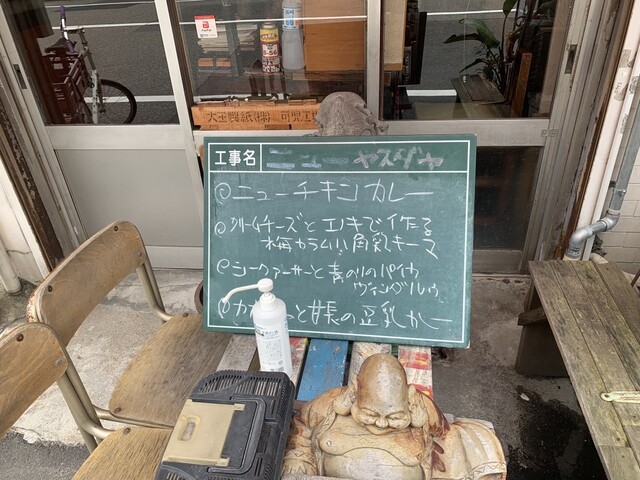 大王製紙(株) 可児工
工事名 ニューヤスダヤ
◎ニューチキンカレー
◎クリームチーズとエノキで作る
梅カラムい角乳キーマ
◎シークァーサーと青のりのパイカ
ヴィンダルゥ
と豆長の豆乳カレー